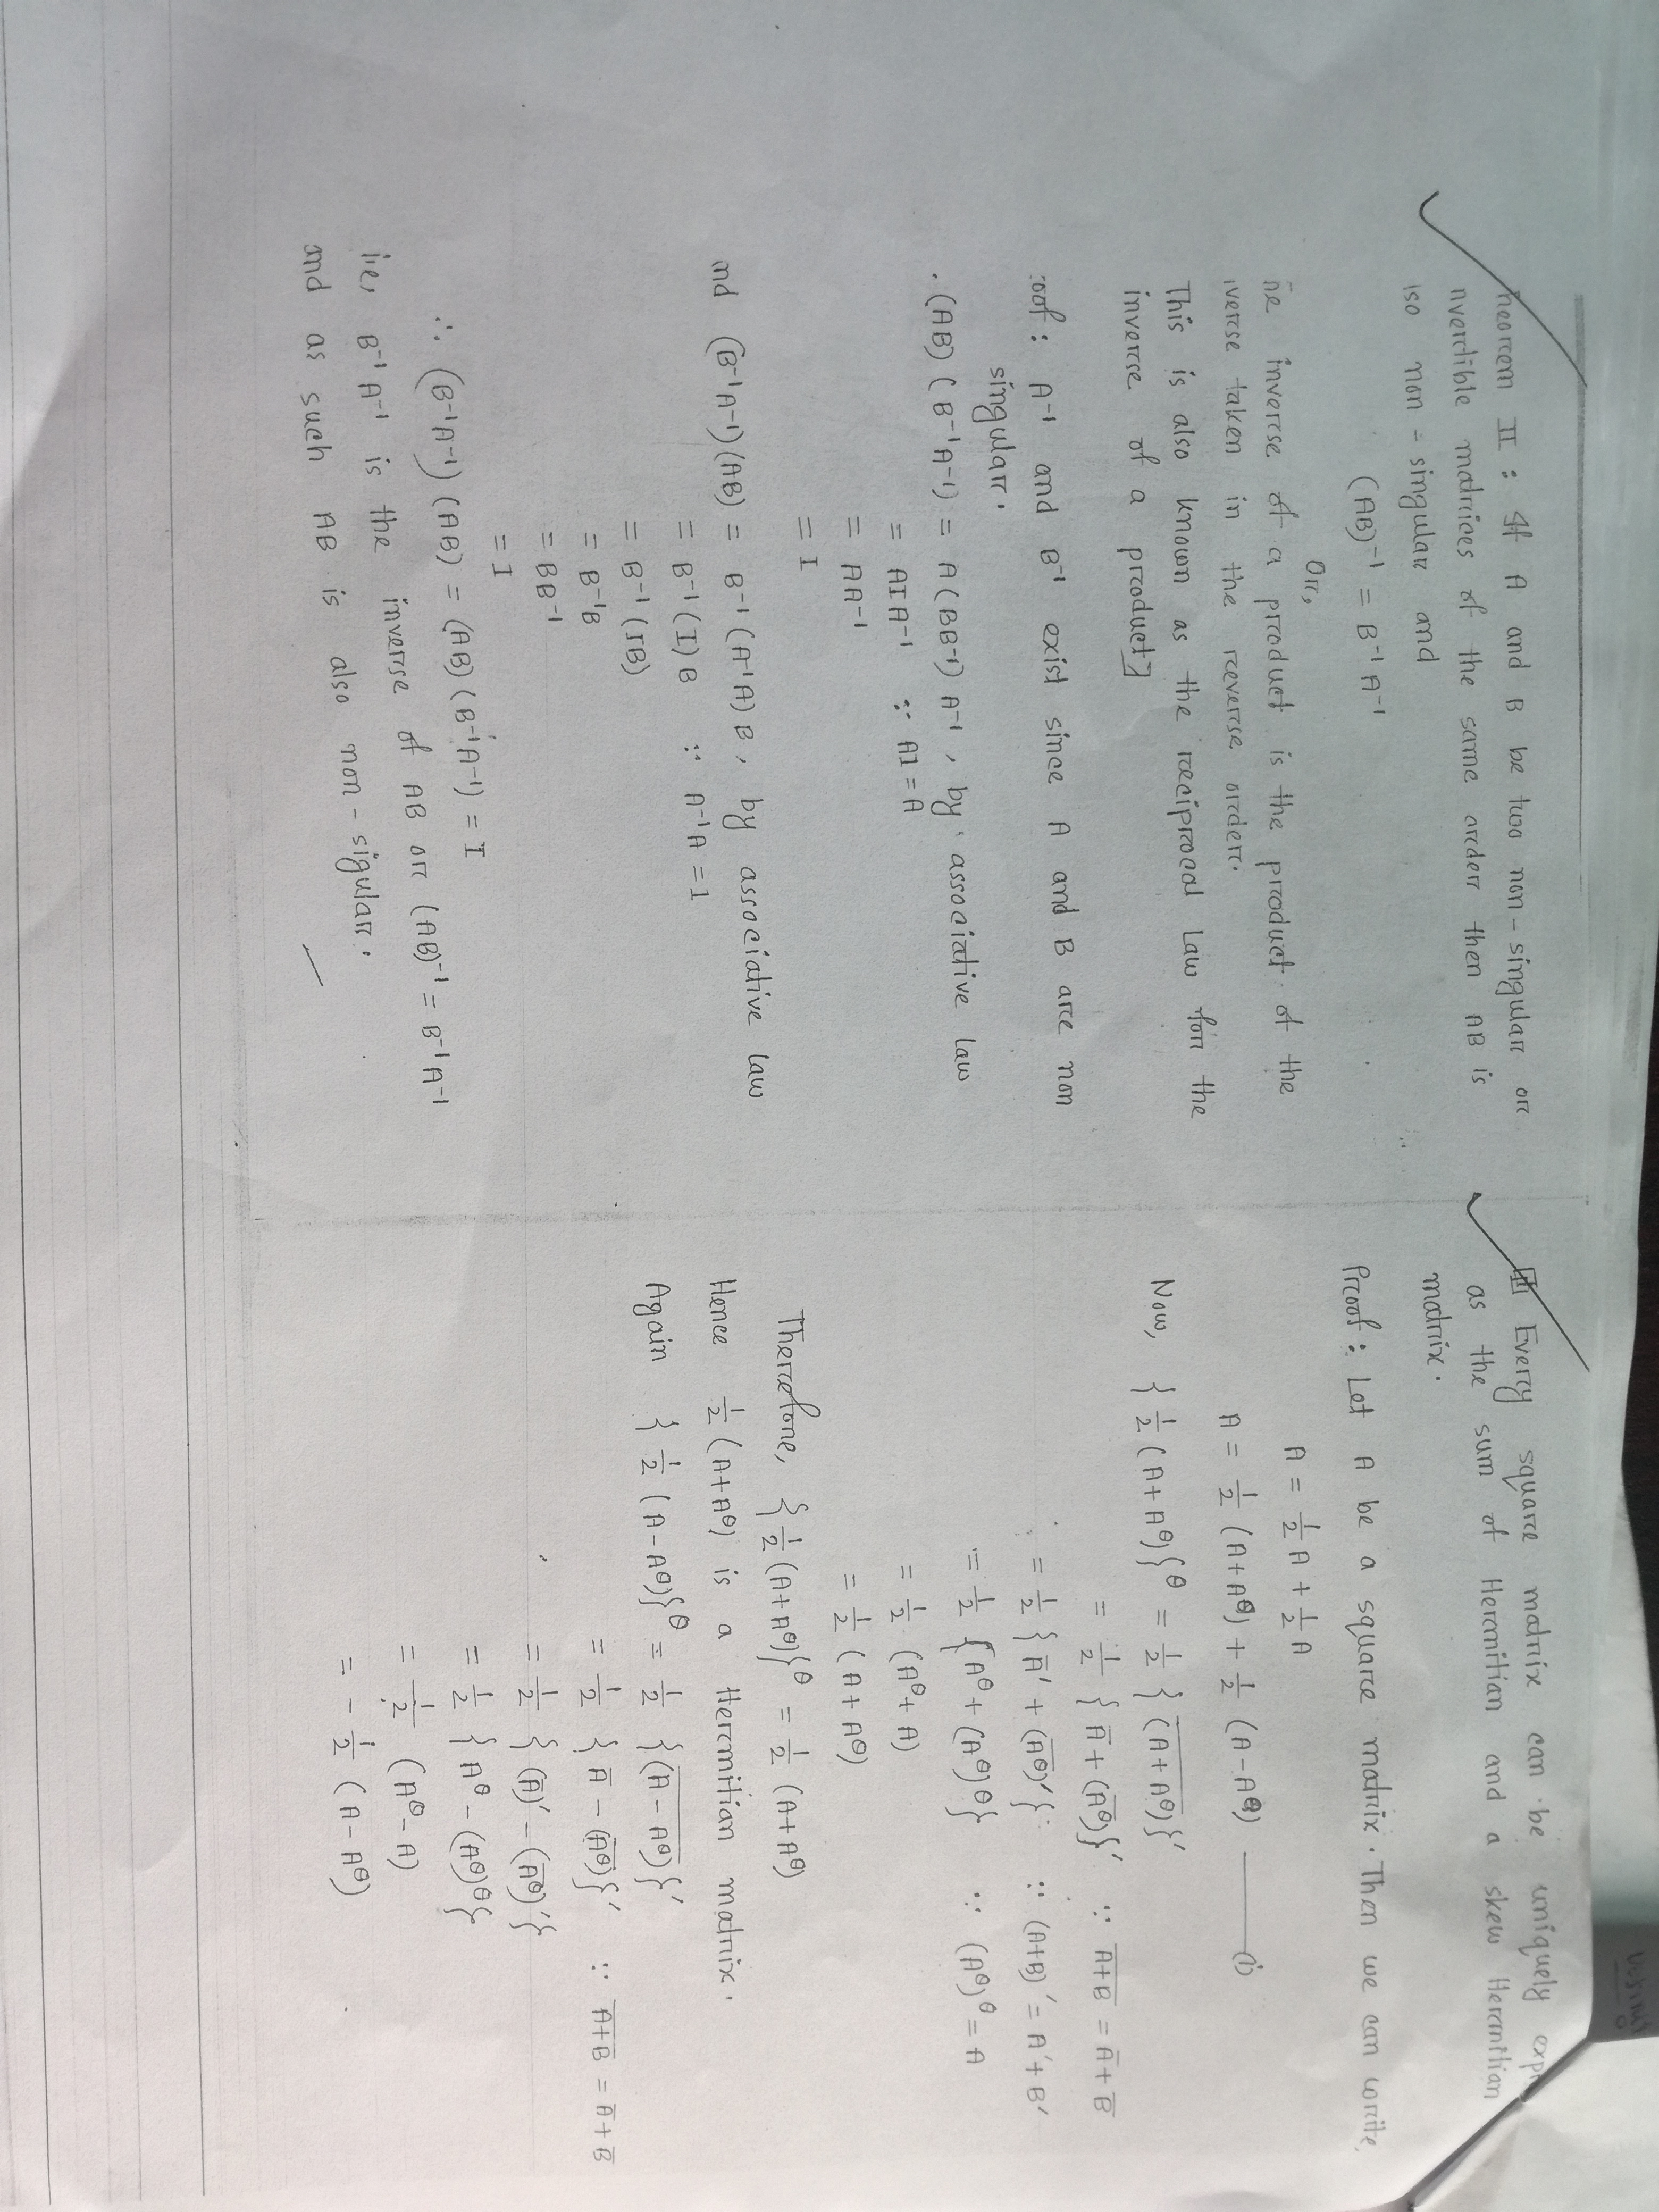 heorem II : If A and B be two non-singular or
nvertible matrices of the same order then AB is
lso non-singular and
(AB)⁻¹ = B⁻¹A⁻¹
Or,
he inverse of a product is the product of the
nverse taken in the reverse order.
This is also known as the reciprocal Law for the
inverse of a product]
roof : A⁻¹ and B⁻¹ exist since A and B are non
singular.
. (AB) (B⁻¹A⁻¹) = A(BB⁻¹) A⁻¹, by associative law
= AIA⁻¹ ∵ AI = A
= AA⁻¹
= I
nd (B⁻¹A⁻¹)(AB) = B⁻¹(A⁻¹A) B, by associative law
= B⁻¹(I) B ∵ A⁻¹A = 1
= B⁻¹(IB)
= B⁻¹B
= BB⁻¹
= I
∴ (B⁻¹A⁻¹) (AB) = (AB) (B⁻¹A⁻¹) = I
i.e, B⁻¹A⁻¹ is the inverse of AB or (AB)⁻¹ = B⁻¹A⁻¹
and as such AB is also non-sigular.
Every square matrix can be uniquely exp
as the sum of Hermitian and a skew Hermitian
matrix.
Proof : Let A be a square matrix. Then we can write,
A = 1/2 A + 1/2 A
A = 1/2 (A+A^θ) + 1/2 (A-A^θ) ——— (i)
Now, {1/2 (A+A^θ)}^θ = 1/2 {\overline{(A+A^θ)}}′
= 1/2 {Ā + (\overline{A^θ})}′ ∵ \overline{A+B} = Ā + B̄
= 1/2 {Ā′ + (\overline{A^θ})′} ∵ (A+B)′ = A′+B′
= 1/2 {A^θ + (A^θ)^θ} ∵ (A^θ)^θ = A
= 1/2 (A^θ + A)
= 1/2 (A + A^θ)
Therefore, {1/2 (A+A^θ)}^θ = 1/2 (A+A^θ)
Hence 1/2 (A+A^θ) is a Hermitian matrix.
Again {1/2 (A-A^θ)}^θ = 1/2 {\overline{(A-A^θ)}}′
= 1/2 {Ā - (\overline{A^θ})}′ ∵ \overline{A+B} = Ā + B̄
= 1/2 {(Ā)′ - (\overline{A^θ})′}
= 1/2 {A^θ - (A^θ)^θ}
= 1/2 (A^θ - A)
= - 1/2 (A - A^θ)